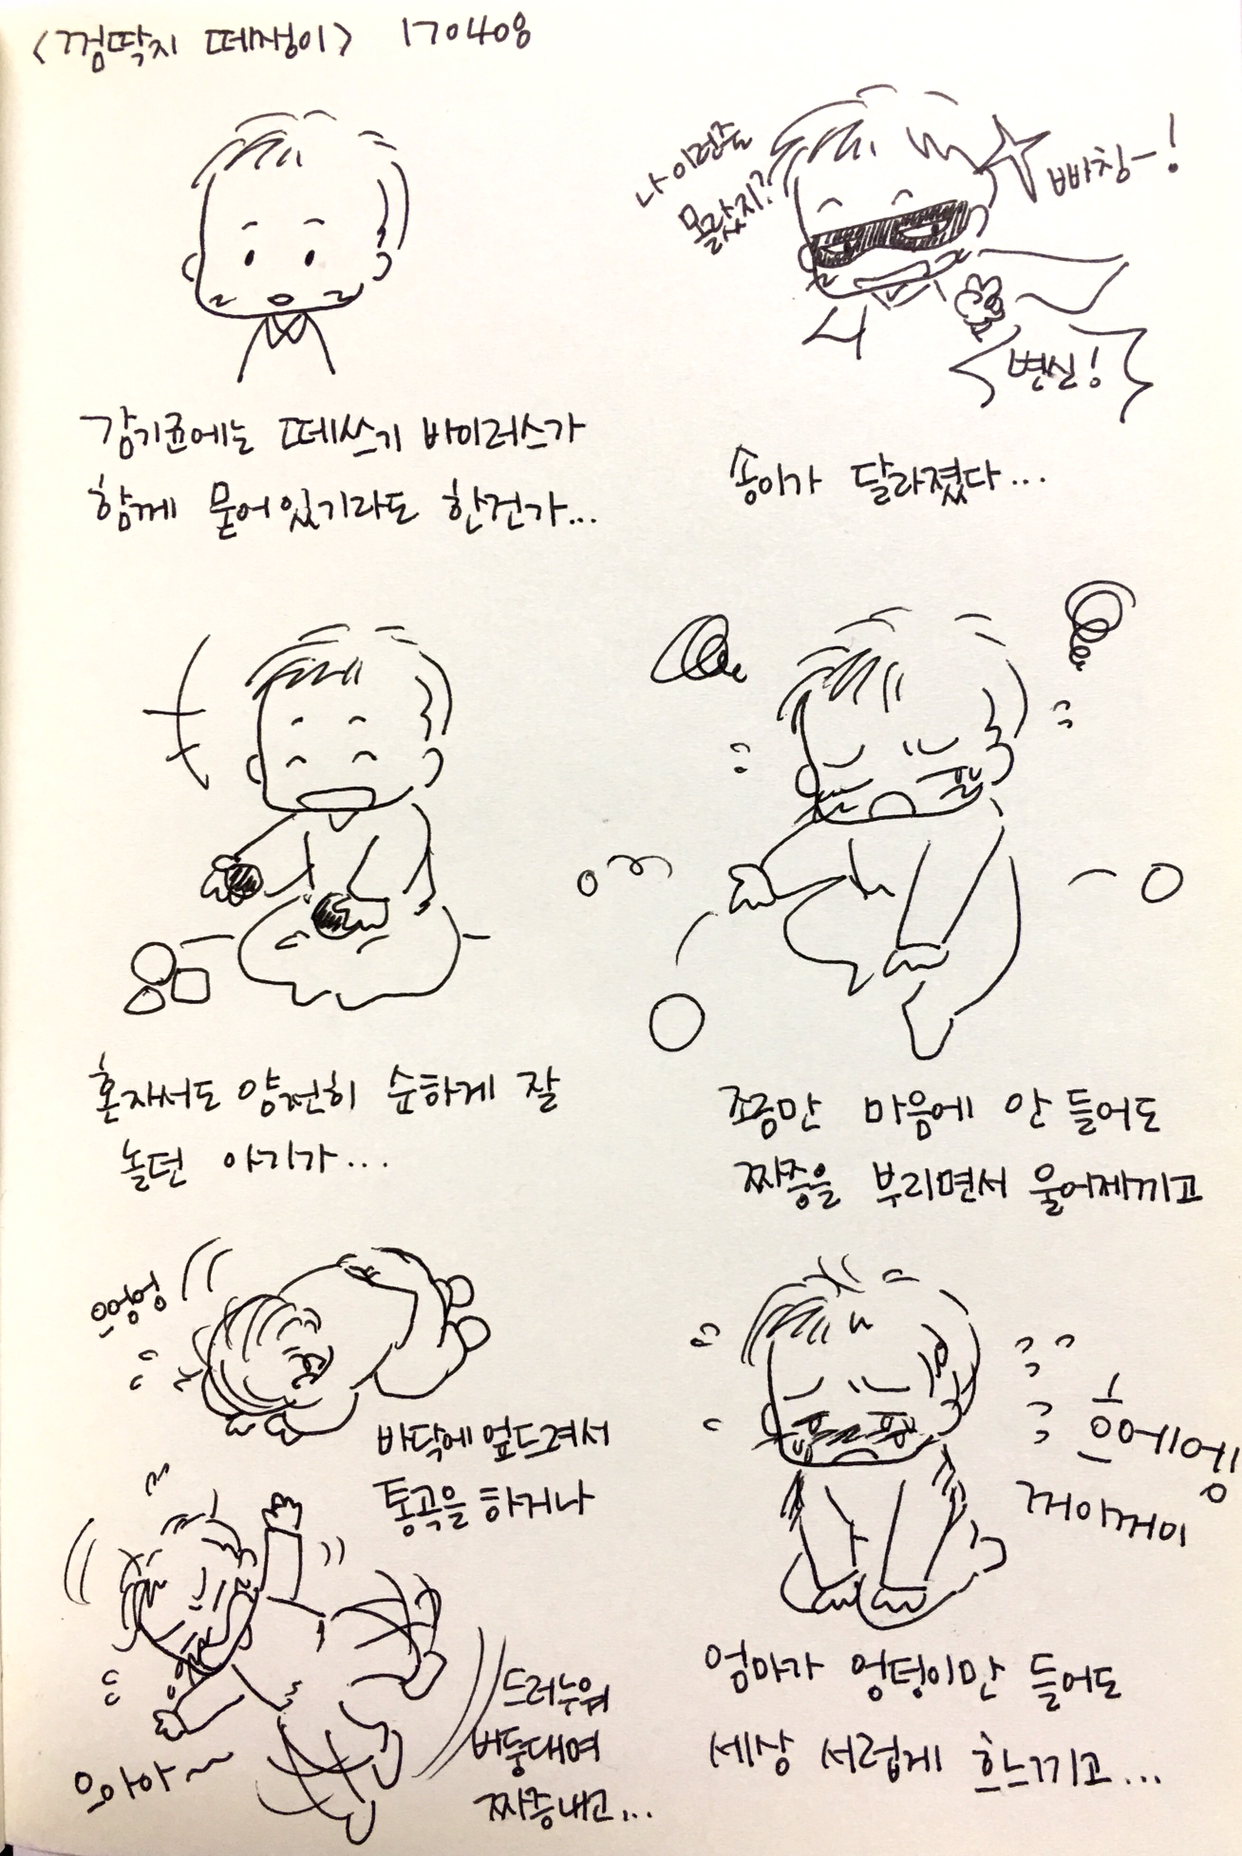 <껌딱지 떼쟁이> 170408
나 이런줄
몰랐지?
빠창-!
변신!
감기균에는 떼쓰기 바이러스가
함께 묻어있기라도 한건가...
송이가 달라졌다...
혼자서도 얌전히 순하게 잘
놀던 아기가...
조금만 마음에 안 들어도
짜증을 부리면서 울어제끼고
으엉엉
바닥에 엎드려서
통곡을 하거나
으아아~
드러누워
버둥대며
짜증내고...
흐에엥
꺼이꺼이
엄마가 엉덩이만 들어도
세상 서럽게 흐느끼고...